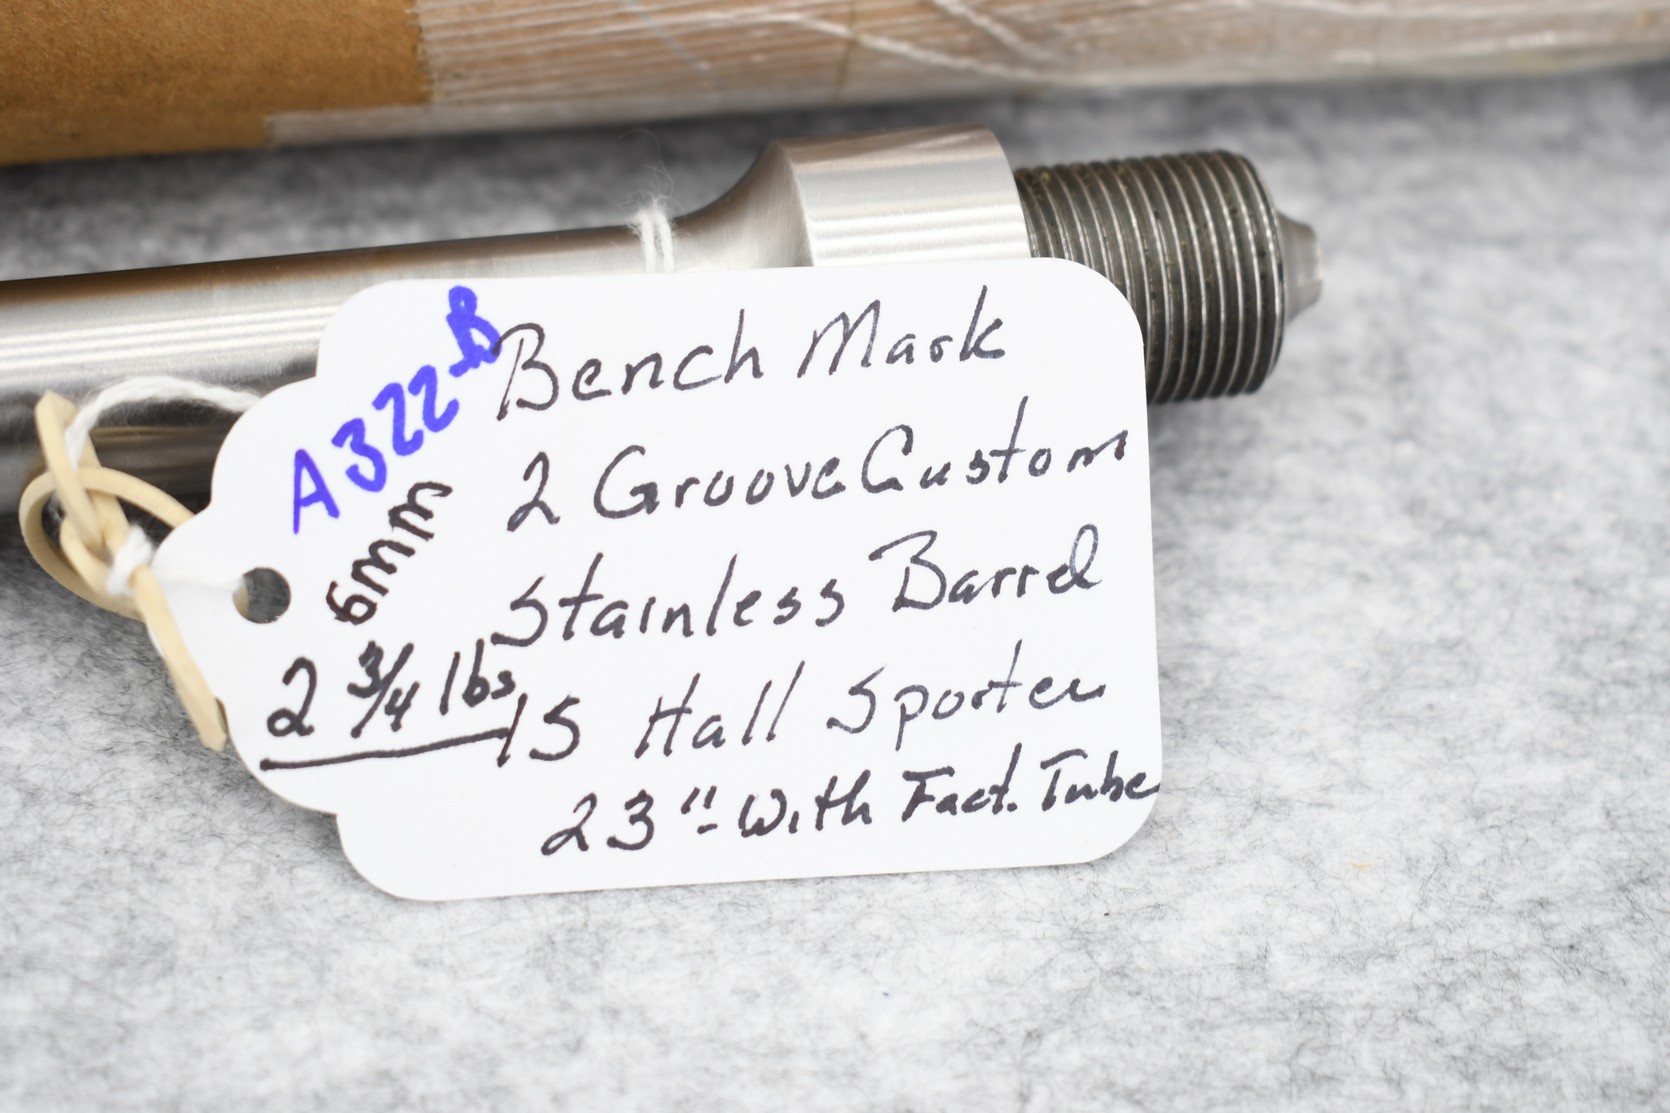 A322-B
6mm
2 3/4 lbs
Bench Mark
2 Groove Custom
Stainless Barrel
15 Hall Sporter
23" With Fact. Tube